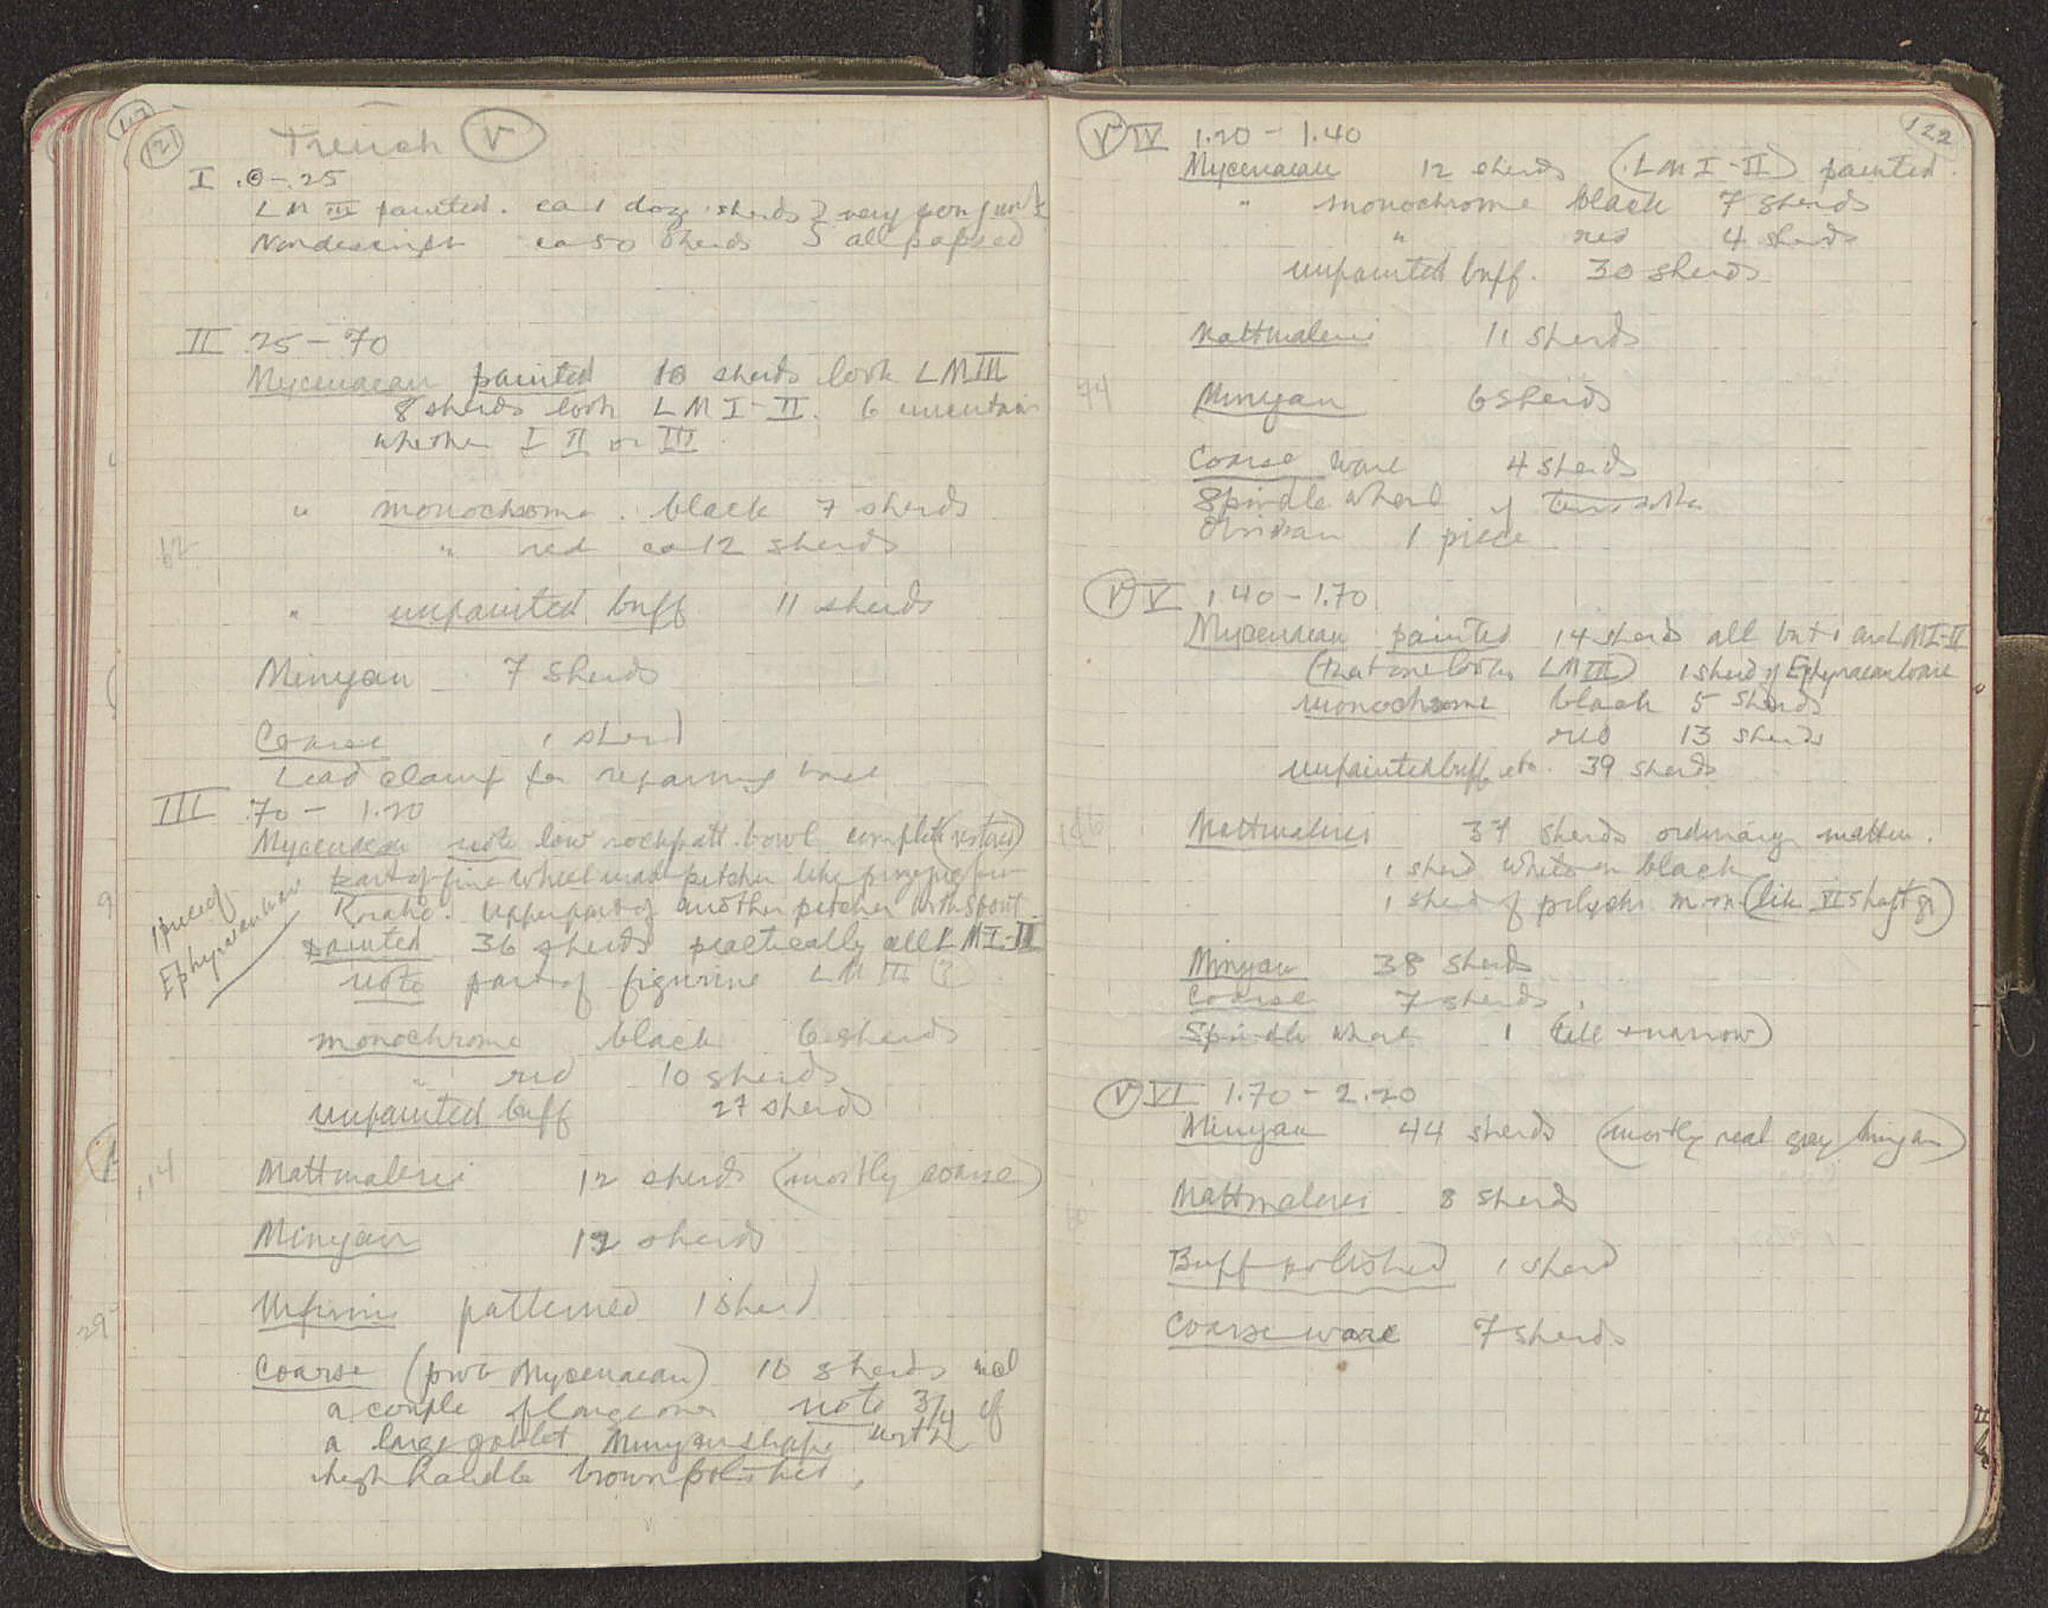 121
Trench V
I .0 - .25
LM III painted. ca 1 doz. sherds } very few
Nondescript ca 50 sherds } all papsed
II .25 - 70
Mycenaean painted 10 sherds look LM III
8 sherds look LM I-II. 6 uncertain
whether I II or III.
" monochrome. black 7 sherds
62
" red ca 12 sherds
" unpainted buff 11 sherds
Minyan 7 sherds
Coarse 1 sherd
Lead clamp for repairing vase
III .70 - 1.20
Mycenaean note low rockpatt. bowl complete (restored)
part of fine wheelmade pitcher like
Korako. Upper part of another pitcher with spout
1 piece of
Ephyraean ware
painted 36 sherds practically all LM I-II
note part of figurine LM III (?)
monochrome black 6 sherds
" red 10 sherds
unpainted buff 27 sherds
114
Mattmalerei 12 sherds (mostly coarse)
Minyan 12 sherds
Urfirnis patterned 1 sherd
Coarse (prob Mycenaean) 10 sherds incl
a couple of large ones note 3/4 of
a large goblet Minyan shape with
high handle brown polished.
122
V IV 1.20 - 1.40
Mycenaean 12 sherds (LM I-II) painted.
" monochrome black 7 sherds
" red 4 sherds
unpainted buff. 30 sherds
Mattmalerei 11 sherds
74
Minyan 6 sherds
Coarse ware 4 sherds
Spindle whorl of terracotta
Obsidian 1 piece
V V 1.40 - 1.70
Mycenaean painted 14 sherds all but 1 are LM I-II
(that one looks LM III) 1 sherd of Ephyraean ware
monochrome black 5 sherds
red 13 sherds
unpainted buff etc. 39 sherds
Mattmalerei 37 sherds ordinary mattm.
1 sherd white on black
1 sherd of polychr m-m (like VI shaft gr)
Minyan 38 sherds
Coarse 7 sherds
Spindle whorl 1 (tall + narrow)
V VI 1.70 - 2.20
Minyan 44 sherds (mostly real gray Minyan)
Mattmalerei 8 sherds
60
Buff polished 1 sherd
Coarse ware 7 sherds